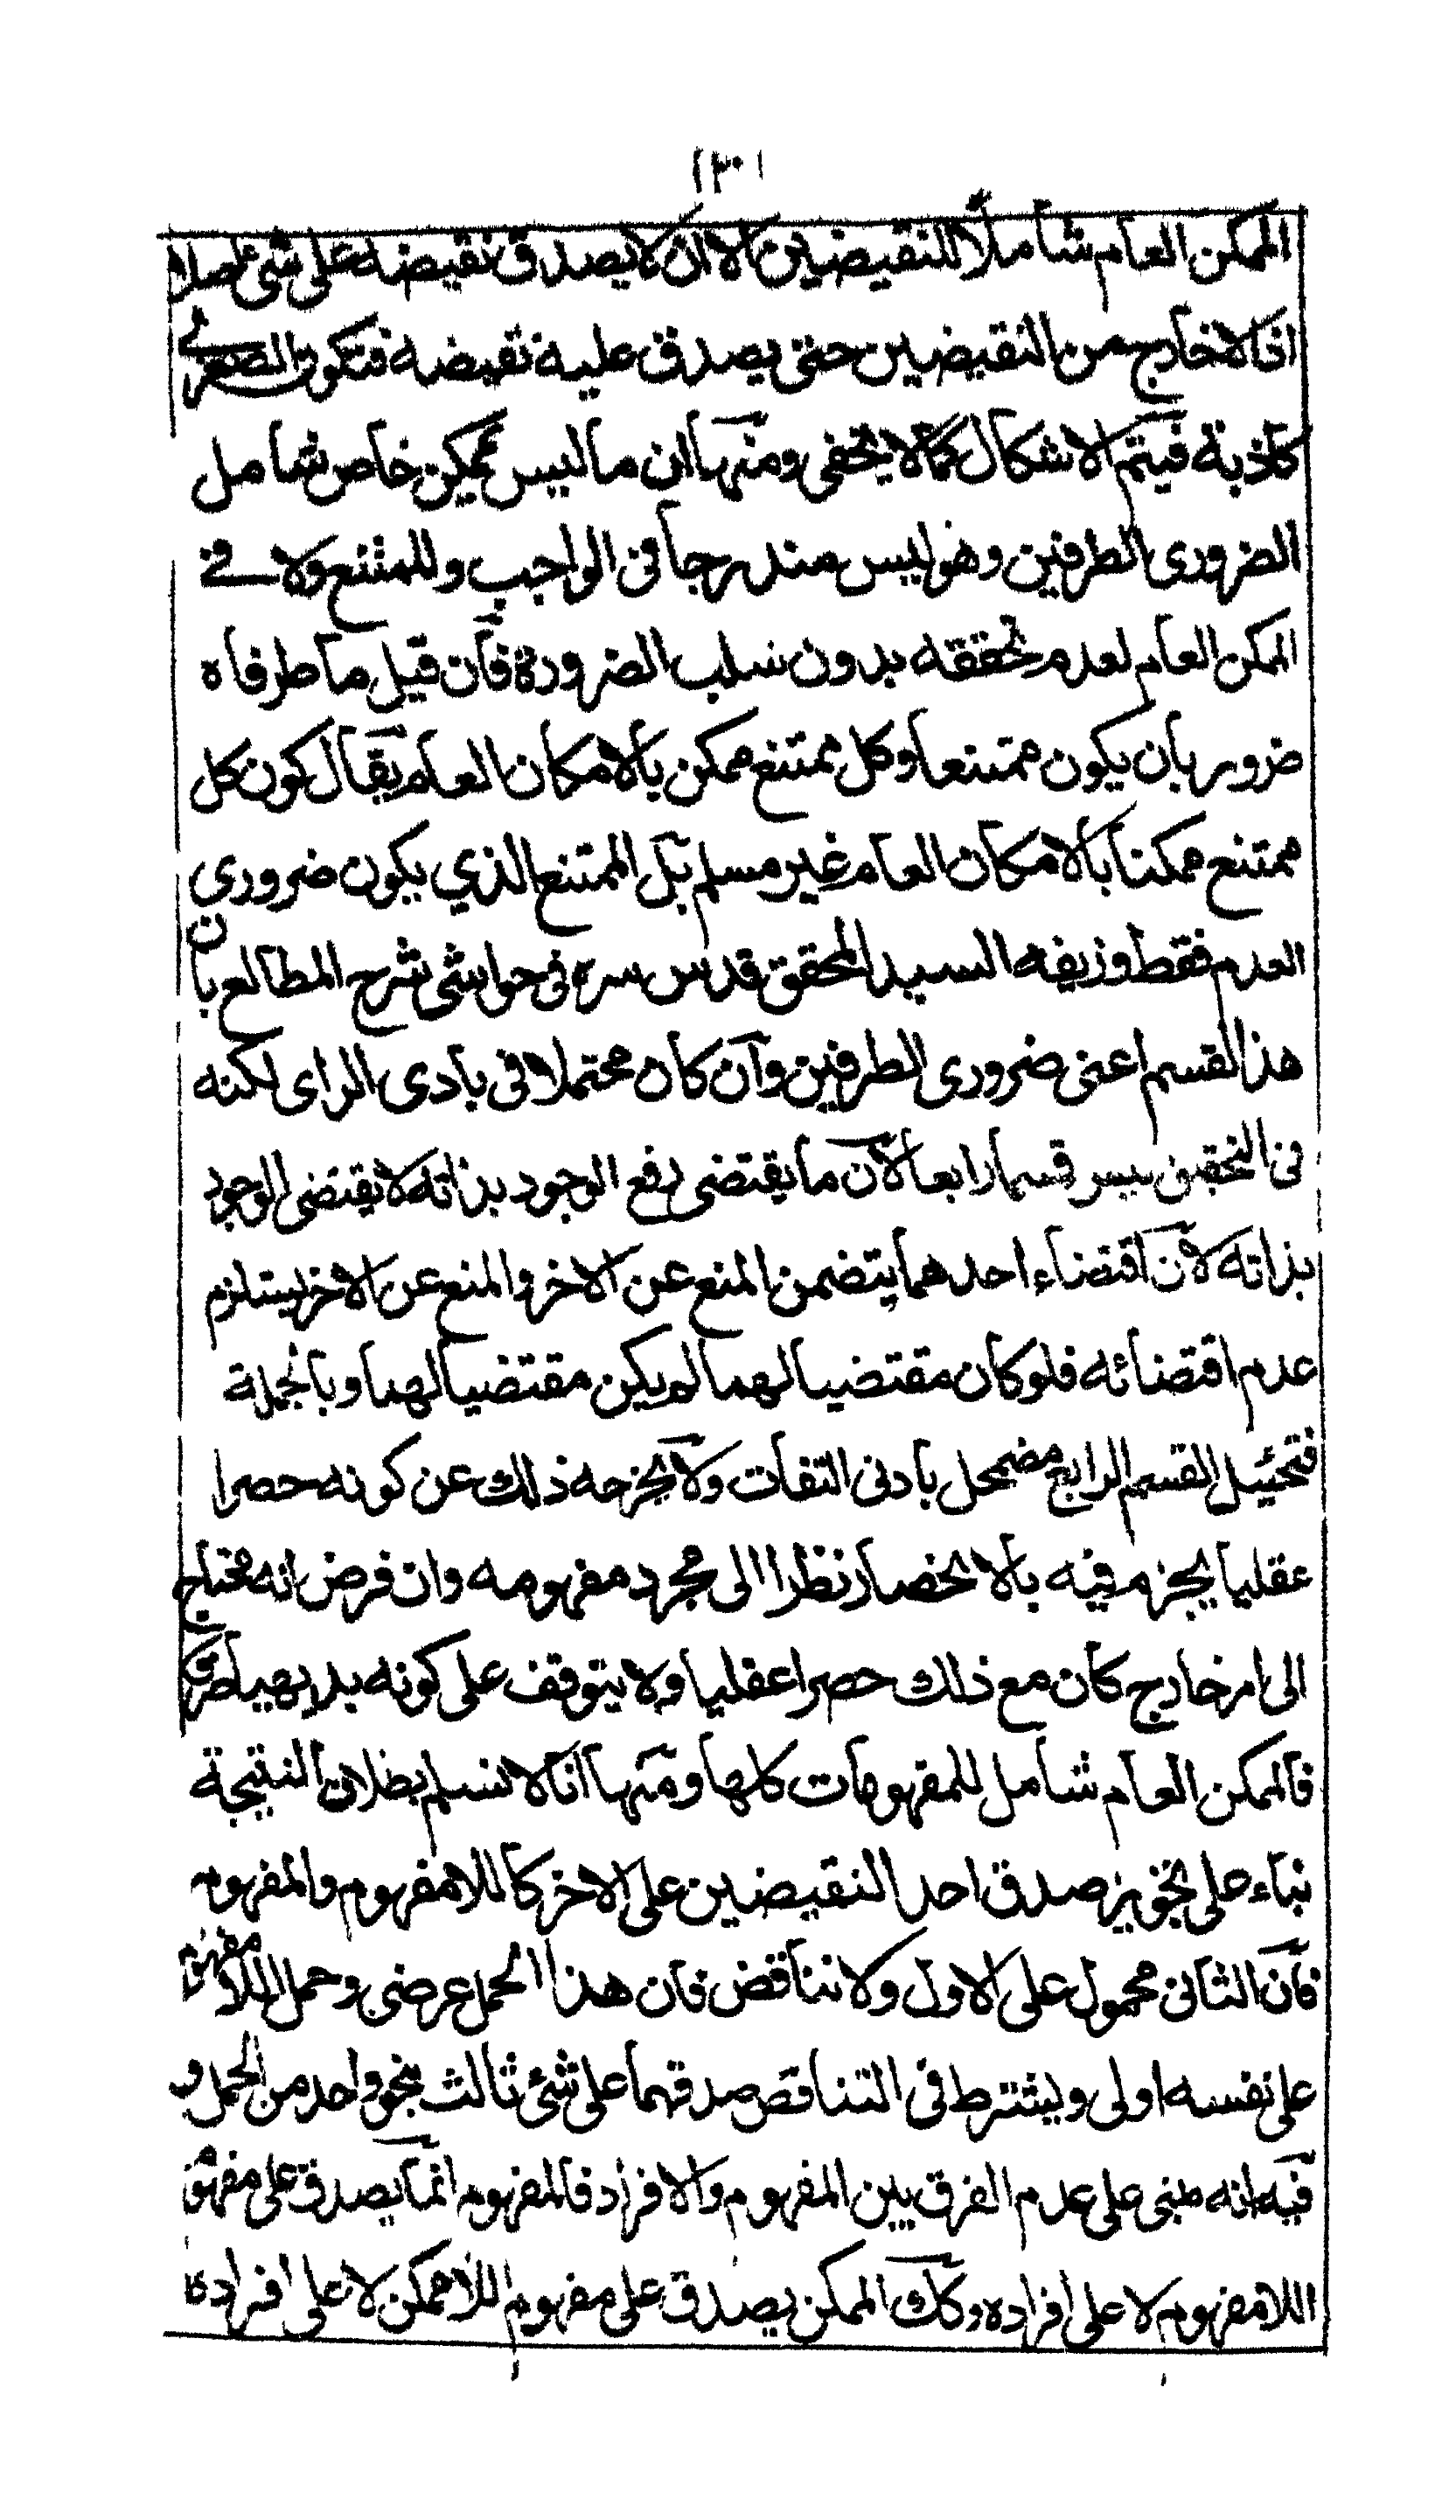 ١٢٠
الممكن العام شاملًا للنقيضين الا ان لا يصدق نقيضه على شئ اصلا
اذ لا خارج من النقيضين حتى يصدق عليه نقيضه فتكون الصغرى
كاذبة فيتم الاشكال كما لا يخفى ومنها ان ما ليس بممكن خاص شامل
الضرورى الطرفين وهو ليس مندرجا فى الواجب وللمتنع ولا فے
الممكن العام لعدم تحققه بدون سلب الضرورة فان قيل ما طرفاه
ضروريان يكون ممتنعا وكل ممتنع ممكن بالامكان العام يقال كون كل
ممتنع ممكنا بالامكان العام غير مسلم بل الممتنع الذي يكون ضروري
العدم فقط وزيفه السيد المحقق قدس سره فى حواشى شرح المطالع بان
هذا القسم اعنى ضرورى الطرفين وان كان محتملا فى بادى الراى لكنه
فى التحقيق ليس قسما رابعا لان ما يقتضى رفع الوجود بذاته لا يقتضى الوجود
بذاته لان اقتضاء احدهما يتضمن المنع عن الاخر والمنع عن الاخر يستلزم
عدم اقتضائه فلو كان مقتضيا لهما لم يكن مقتضيا لهما وبالجملة
فتخئيل القسم الرابع مضمحل بادنى التفات ولا يخرجه ذلك عن كونه حصرا
عقليا يجزم فيه بالانحصار نظرا الى مجرد مفهومه وان فرض انه محتاج
الى امر خارج كان مع ذلك حصرا عقليا ولا يتوقف على كونه بديهيا صرفا
فالممكن العام شامل للمفهومات كلها ومنها انا لا نسلم بطلان النتيجة
بناء على تجويز صدق احد النقيضين على الاخر كاللامفهوم والمفهوم
فان الثانى محمول على الاول ولا تناقض فان هذا الحمل عرضى وحمل اللامفهوم
على نفسه اولى ويشترط فى التناقض صدقهما على شئ ثالث بنحو واحد من الحمل و
فيه انه مبنى على عدم الفرق بين المفهوم والافراد فالمفهوم انما يصدق على مفهوم
اللامفهوم لا على افراده وكك الممكن يصدق على مفهوم اللاممكن لا على افراده